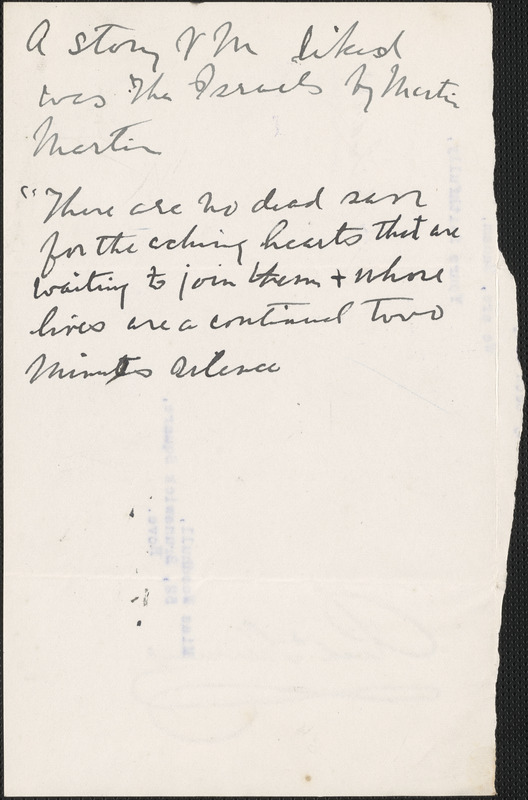 A story V M liked
was The Israels by Martin
Martin
"There are no dead save
for the aching hearts that are
waiting to join them + whose
lives are a continual two
Minutes silence